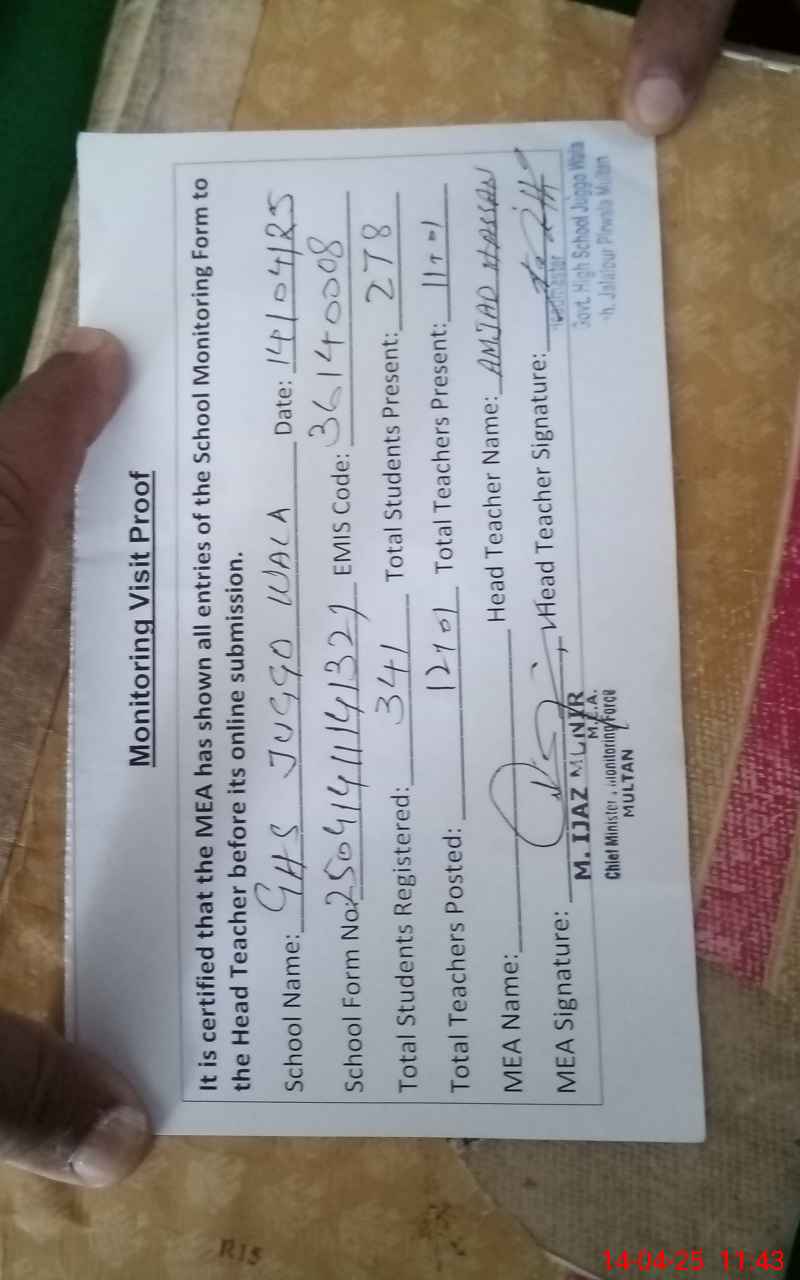 Monitoring Visit Proof
It is certified that the MEA has shown all entries of the School Monitoring Form to
the Head Teacher before its online submission.
School Name: GHS JUGGO WALA Date: 14/04/25
School Form No: EMIS Code: 36140008
Total Students Registered: 341 Total Students Present: 278
Total Teachers Posted: 12+01 Total Teachers Present: 11+01
MEA Name: Head Teacher Name: AMJAD HASSAN
MEA Signature: Head Teacher Signature:
M. IJAZ MUNIR
M.E.A.
Chief Minister's Monitoring Force
MULTAN
Headmaster
Govt. High School Juggo Wala
Jalalpur Pirwala Multan
R15
14-04-25 11:43